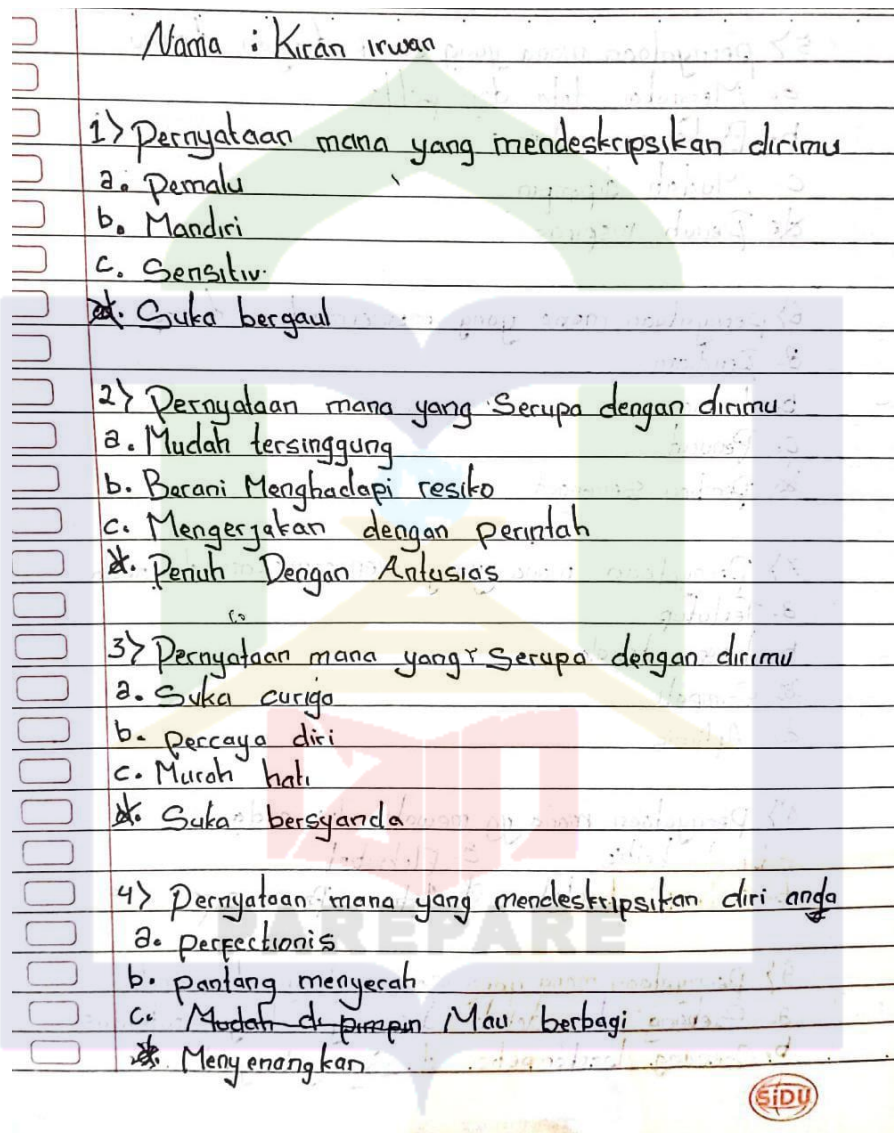 Nama : Kiran irwan
1> Pernyataan mana yang mendeskripsikan dirimu
a. Pemalu
b. Mandiri
c. Sensitiv.
d. Suka bergaul
2> Pernyataan mana yang Serupa dengan dirimu
a. Mudah tersinggung
b. Berani Menghadapi resiko
c. Mengerjakan dengan perintah
d. Penuh Dengan Antusias
3> Pernyataan mana yang Serupa dengan dirimu
a. Suka curiga
b. percaya diri
c. Murah hati
d. Suka bersyanda
4> Pernyataan mana yang mendeskripsikan diri anda
a. perfectionis
b. pantang menyerah
c. Mudah di pimpin Mau berbagi
d. Menyenangkan
PAREPARE
SiDU